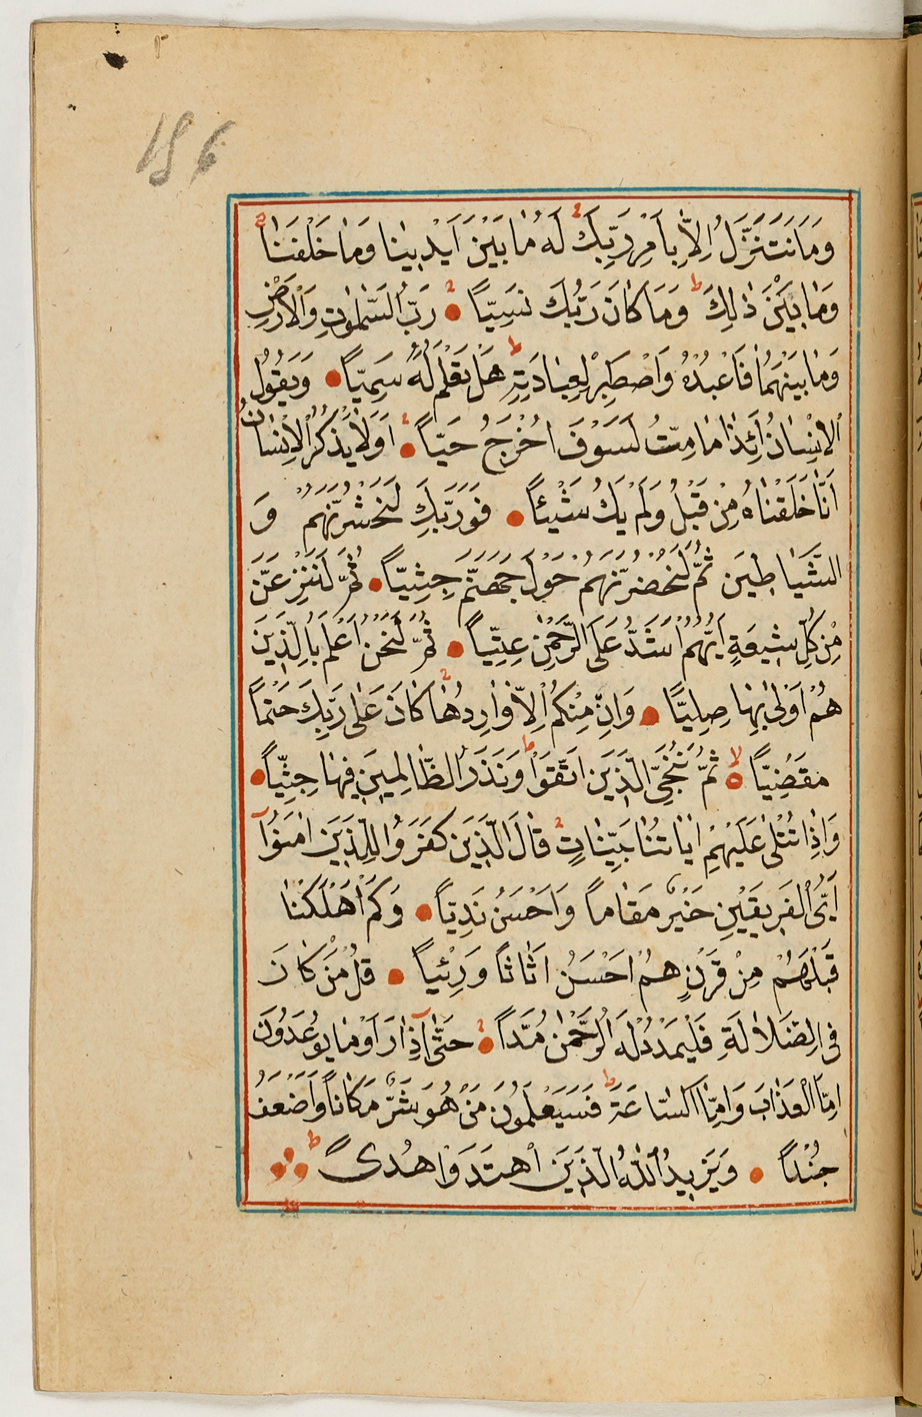 186
وَمَا نَتَنَزَّلُ اِلَّا بِاَمْرِ رَبِّكَ لَهُ مَا بَيْنَ اَيْدٖينَا وَمَا خَلْفَنَا
وَمَا بَيْنَ ذٰلِكَ وَمَا كَانَ رَبُّكَ نَسِيّاً رَبُّ السَّمٰوَاتِ وَالْاَرْضِ
وَمَا بَيْنَهُمَا فَاعْبُدْهُ وَاصْطَبِرْ لِعِبَادَتِهٖ هَلْ تَعْلَمُ لَهُ سَمِيّاً وَيَقُولُ
الْاِنْسَانُ أَئِذَا مَا مِتُّ لَسَوْفَ اُخْرَجُ حَيّاً اَوَلَا يَذْكُرُ الْاِنْسَانُ
اَنَّا خَلَقْنَاهُ مِنْ قَبْلُ وَلَمْ يَكُ شَيْئاً فَوَرَبِّكَ لَنَحْشُرَنَّهُمْ وَ
الشَّيَاطٖينَ ثُمَّ لَنُحْضِرَنَّهُمْ حَوْلَ جَهَنَّمَ جِثِيّاً ثُمَّ لَنَنْزِعَنَّ
مِنْ كُلِّ شٖيعَةٍ اَيُّهُمْ اَشَدُّ عَلَى الرَّحْمٰنِ عِتِيّاً ثُمَّ لَنَحْنُ اَعْلَمُ بِالَّذٖينَ
هُمْ اَوْلٰى بِهَا صِلِيّاً وَاِنْ مِنْكُمْ اِلَّا وَارِدُهَا كَانَ عَلٰى رَبِّكَ حَتْماً
مَقْضِيّاً ثُمَّ نُنَجِّي الَّذٖينَ اتَّقَوْا وَنَذَرُ الظَّالِمٖينَ فٖيهَا جِثِيّاً
وَاِذَا تُتْلٰى عَلَيْهِمْ اٰيَاتُنَا بَيِّنَاتٍ قَالَ الَّذٖينَ كَفَرُوا لِلَّذٖينَ اٰمَنُوا
اَيُّ الْفَرٖيقَيْنِ خَيْرٌ مَقَاماً وَاَحْسَنُ نَدِيّاً وَكَمْ اَهْلَكْنَا
قَبْلَهُمْ مِنْ قَرْنٍ هُمْ اَحْسَنُ اَثَاثاً وَرِئْياً قُلْ مَنْ كَانَ
فِي الضَّلَالَةِ فَلْيَمْدُدْ لَهُ الرَّحْمٰنُ مَدّاً حَتّٰى اِذَا رَاَوْا مَا يُوعَدُونَ
اِمَّا الْعَذَابَ وَاِمَّا السَّاعَةَ فَسَيَعْلَمُونَ مَنْ هُوَ شَرٌّ مَكَاناً وَاَضْعَفُ
جُنْداً وَيَزٖيدُ اللّٰهُ الَّذٖينَ اهْتَدَوْا هُدىً